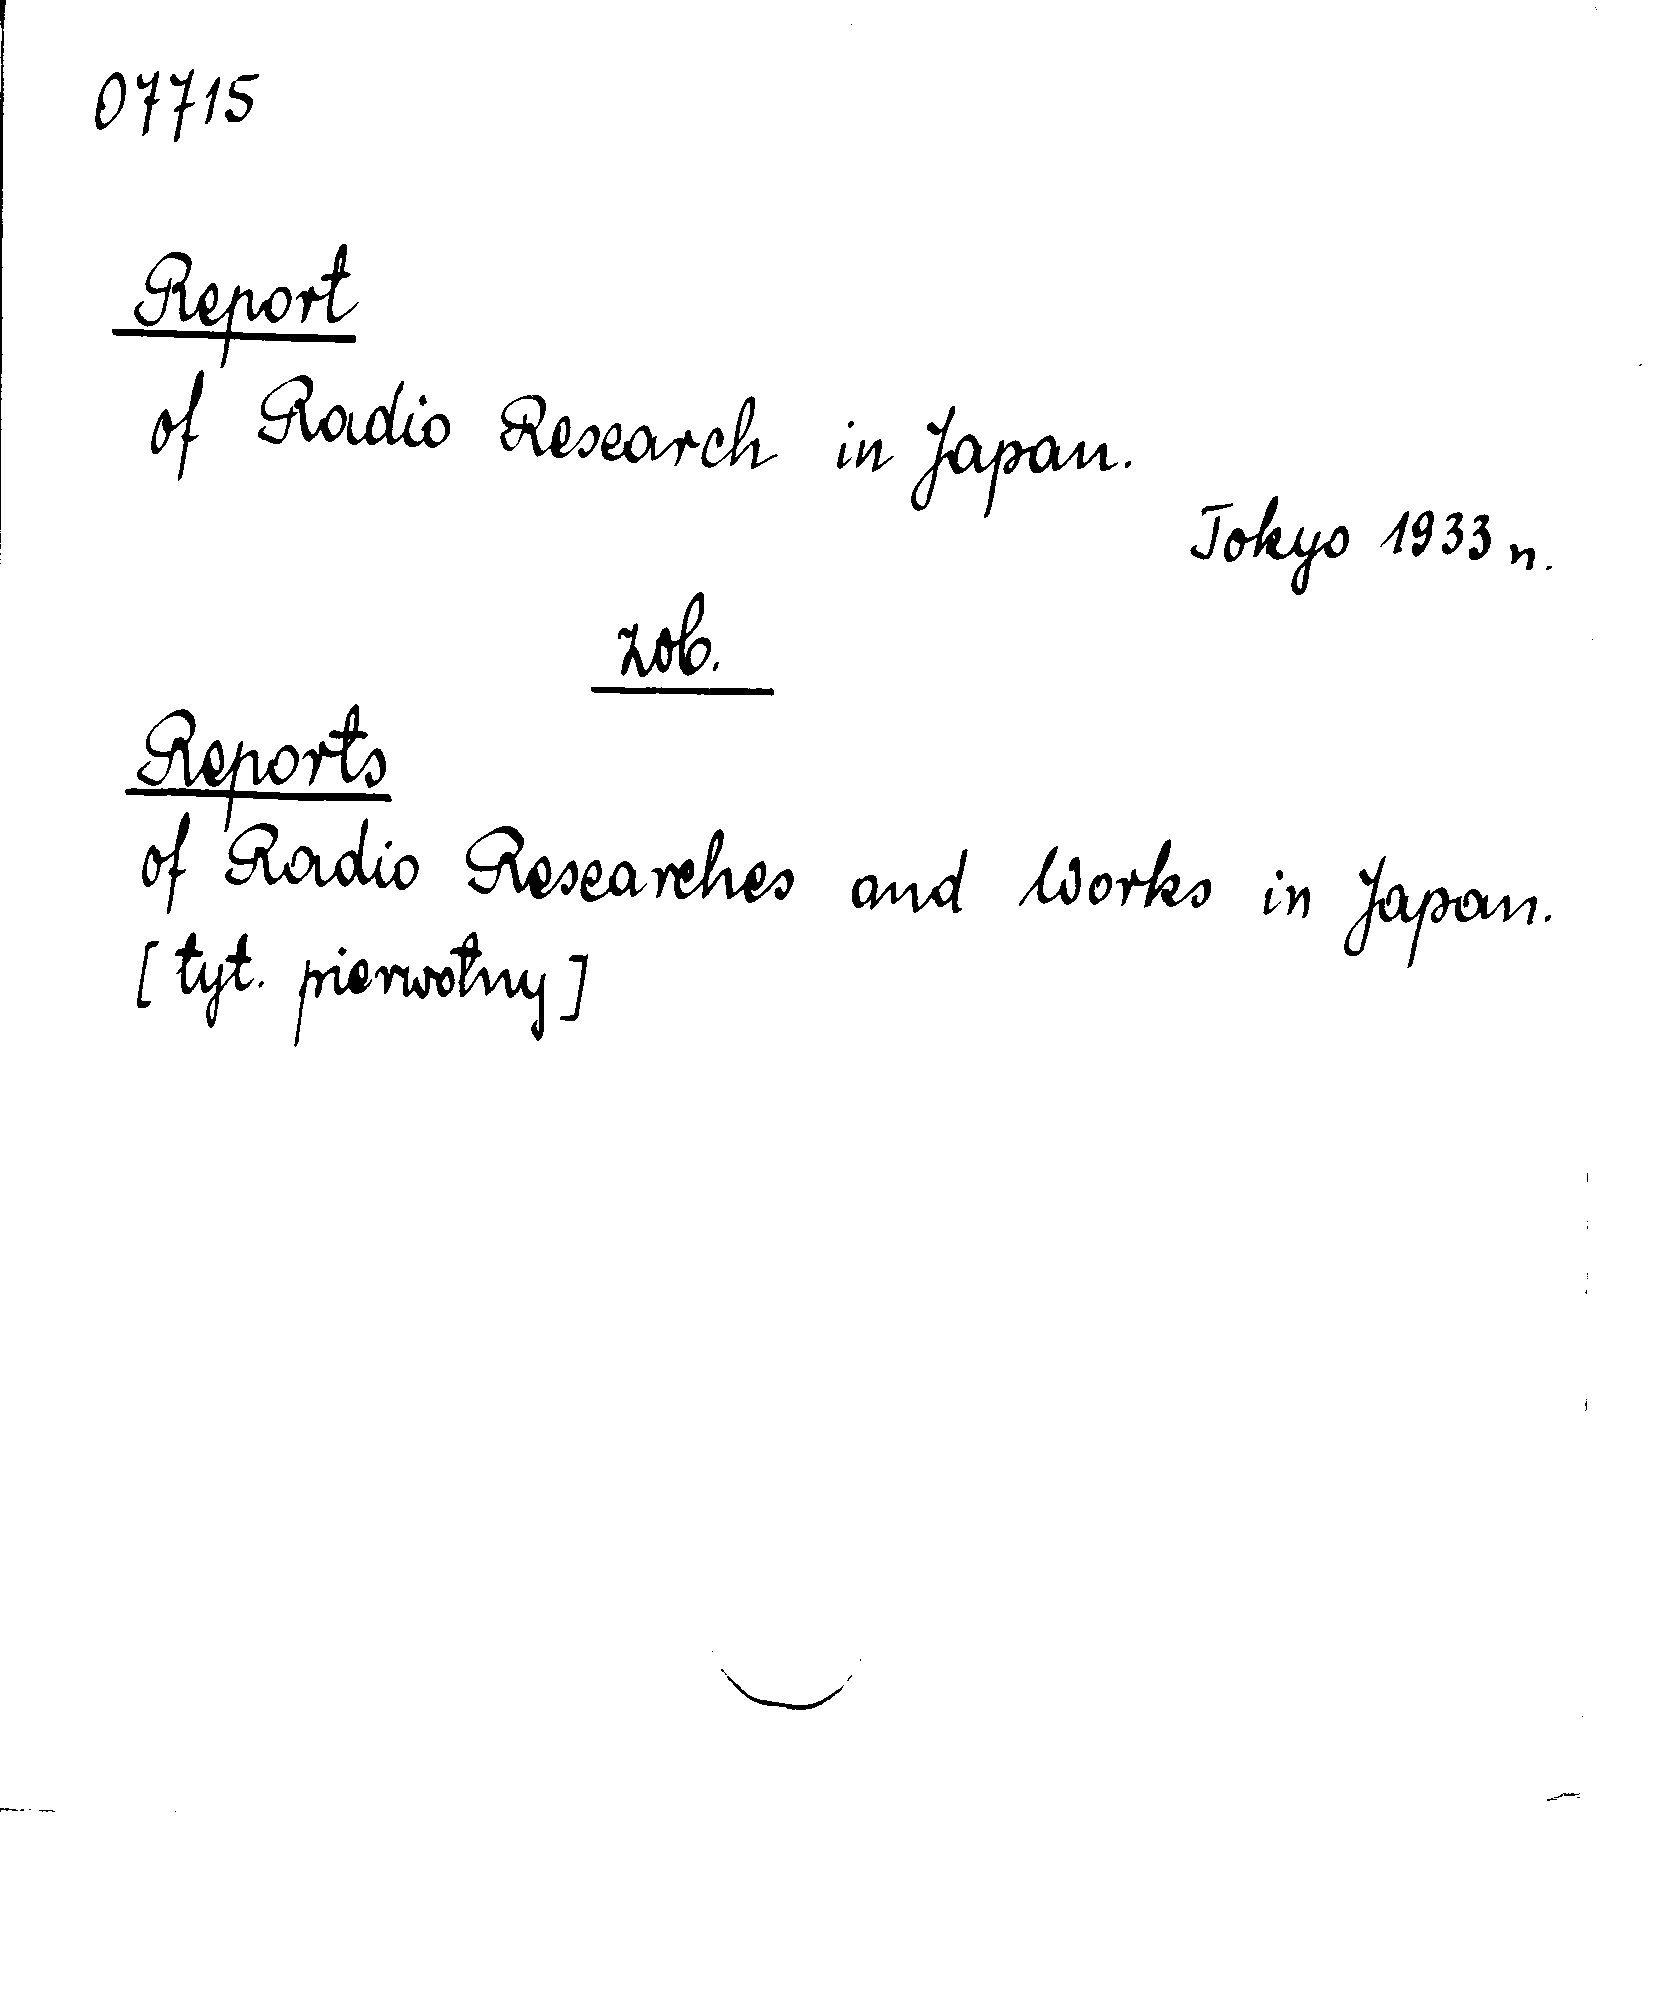 07715
Report
of Radio Research in Japan.
Tokyo 1933 n.
zob.
Reports
of Radio Researches and Works in Japan.
[tyt. pierwotny]